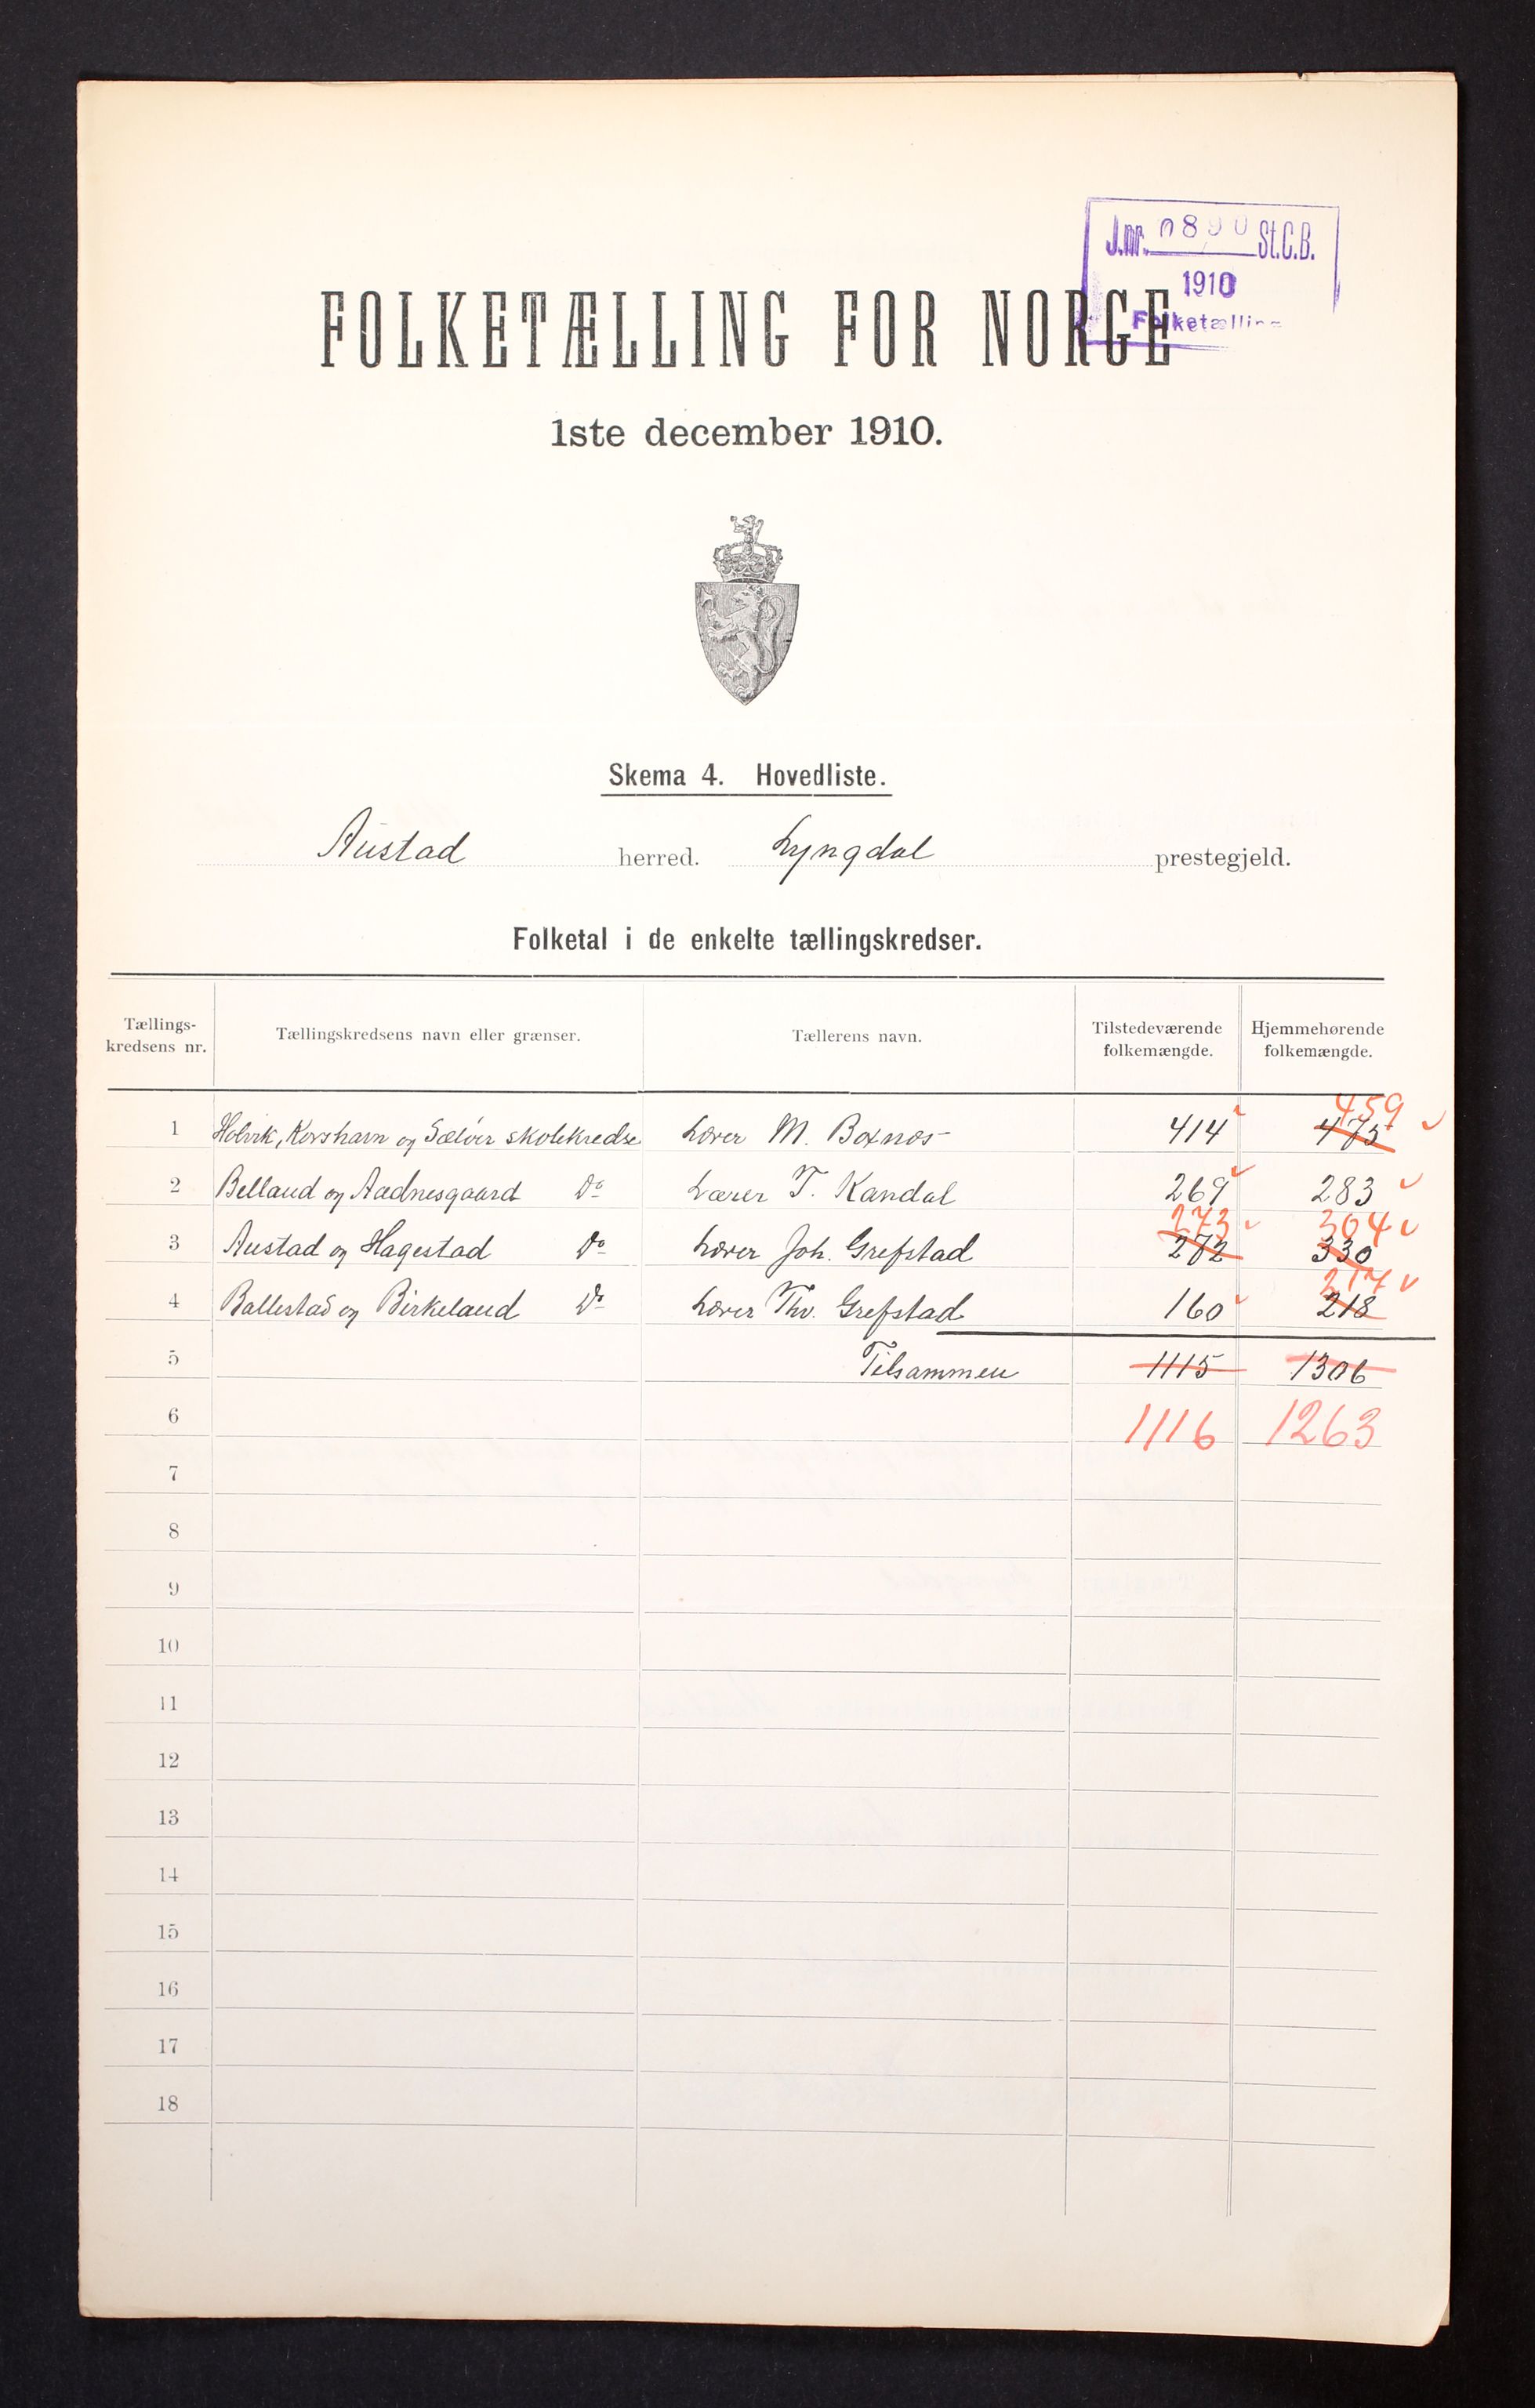 J.nr. 0890 St.C.B.
1910
Folketælling
FOLKETÆLLING FOR NORGE
1ste december 1910.
Skema 4. Hovedliste.
Austad herred. Lyngdal prestegjeld.
Folketal i de enkelte tællingskredser.
Tællings-kredsens nr. Tællingskredsens navn eller grænser. Tællerens navn. Tilstedeværende folkemængde. Hjemmehørende folkemængde.
459
1 Holvik, Korshavn og Sæløer skolekredse Lærer M. Boxnæs 414 475
2 Belland og Aadnesgaard Do Lærer T. Kandal 269 283
273 304
3 Austad og Hagestad Do Lærer Joh. Grefstad 272 330
217
4 Ballestad og Birkeland Do Lærer Thv. Grefstad 160 218
5 Tilsammen 1115 1306
6 1116 1263
7
8
9
10
11
12
13
14
15
16
17
18